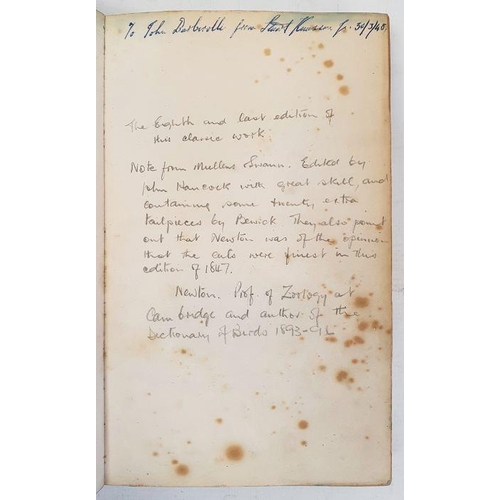 To John from Jr. 30/3/40.
The Eighth and last edition of
this classic work
Note from Mullens & Swann. Edited by
John Hancock with great skill, and
containing some twenty extra
tailpieces by Bewick. They also point
out that Newton was of the opinion
that the cuts were finest in this
edition of 1847.
Newton. Prof of Zoology at
Cambridge and author of the
Dictionary of Birds 1893-96